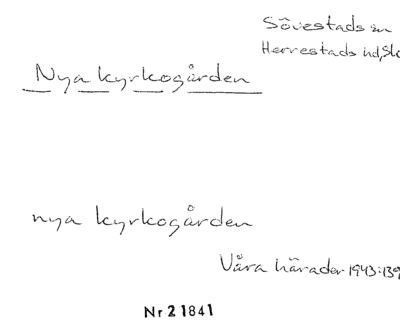 Sövestads sn
Herrestads hd, Sk
Nya kyrkogården
nya kyrkogården
Våra härader 1943:139
Nr 21841